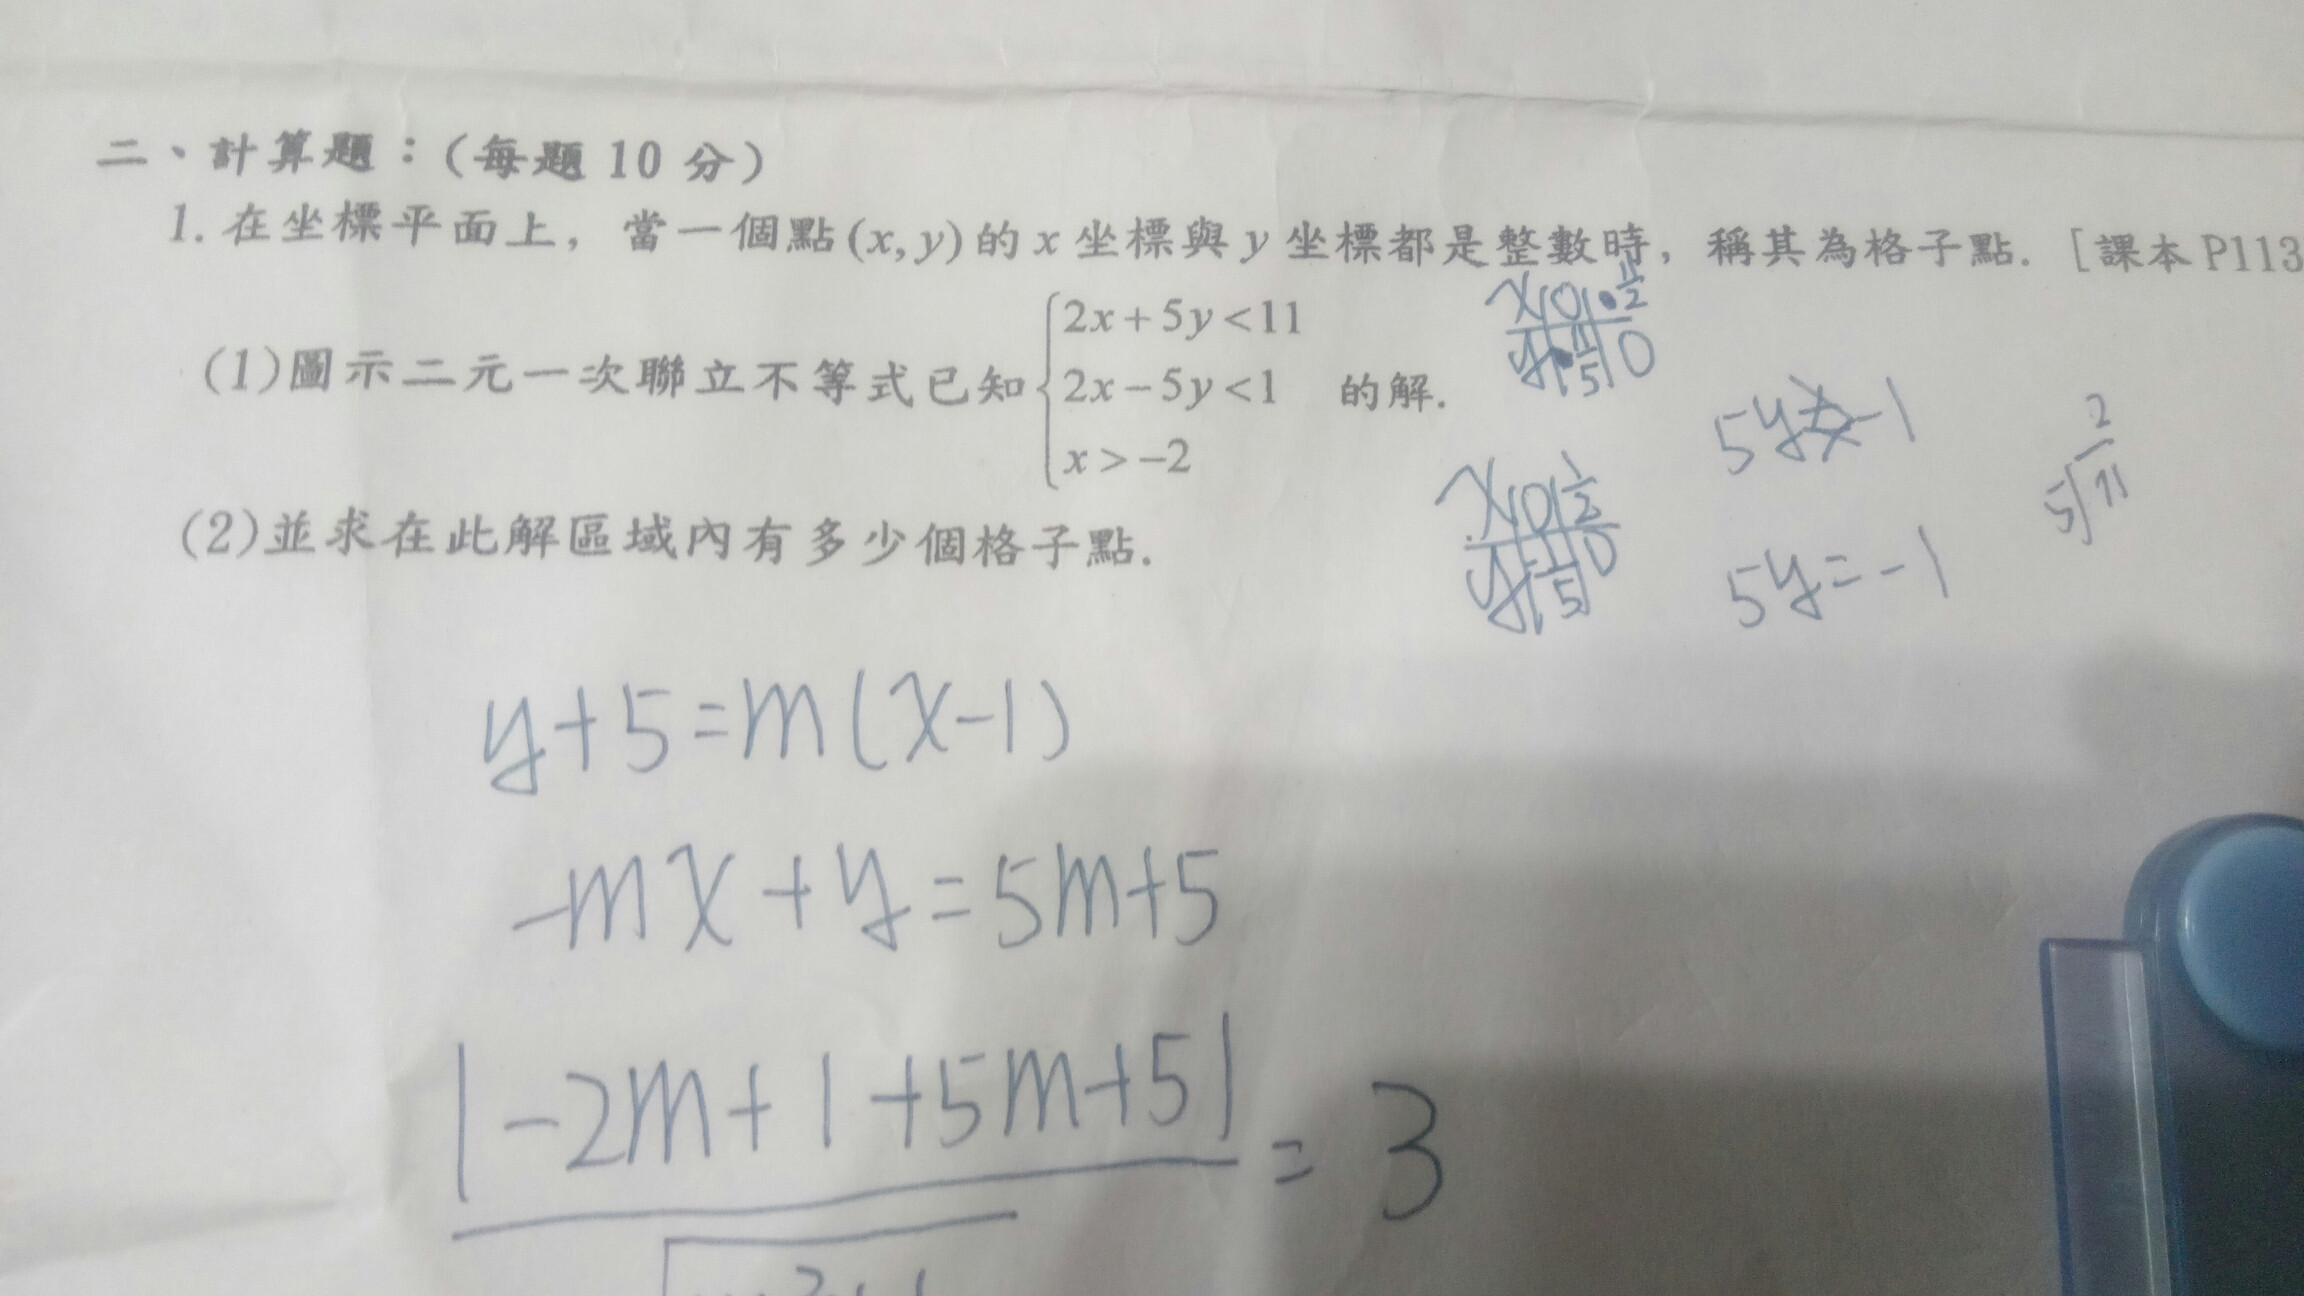 二、計算題：(每題 10 分)
1. 在坐標平面上，當一個點(x, y)的 x 坐標與 y 坐標都是整數時，稱其為格子點. [課本 P113
(1)圖示二元一次聯立不等式已知
2x+5y<11
2x−5y<1
x>−2
的解.
(2)並求在此解區域內有多少個格子點.
x 0 11/2
y 11/5 0
x 0 1/2
y 1/5 0
5y -1
5y=-1
2
5 11
y+5=m(x-1)
-mx+y=5m+5
|-2m+1+5m+5| = 3